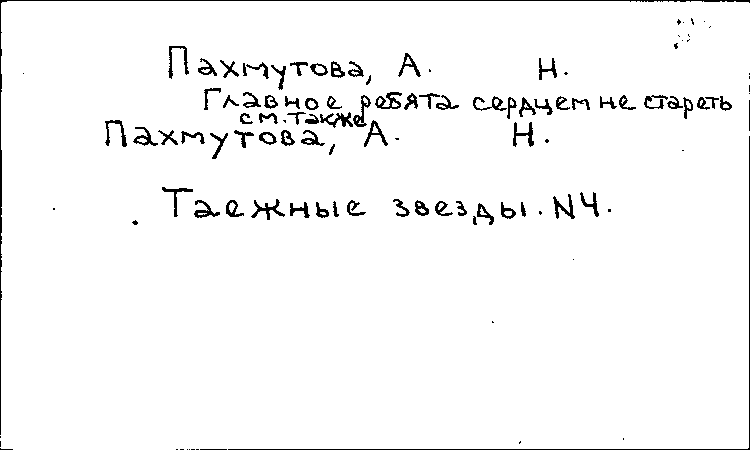 Пахмутова, А. Н.
Главное ребята сердцем не стареть
см. также
Пахмутова, А. Н.
Таежные звезды. N4.